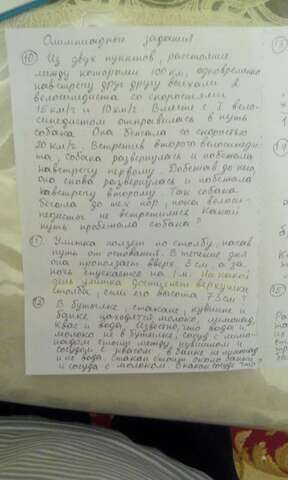 Олимпиадные задания
10 Из двух пунктов, расстояние
между которыми 100 км, одновременно
навстречу друг другу выехали 2
велосипедиста со скоростями
15 км/ч и 10 км/ч. Вместе с I вело-
сипедистом отправилась в путь
собака. Она бежала со скоростью
20 км/ч. Встретив второго велосипеди-
ста, собака развернулась и побежала
навстречу первому. Добежав до него,
она снова развернулась и побежала
навстречу второму. Так собака
бегала до тех пор, пока велоси-
педисты не встретились. Какой
путь пробежала собака?
11 Улитка ползёт по столбу, начав
путь от основания. В течение дня
она проползает вверх 5 см, а за
ночь спускается на 1 м. На какой
день улитка достигнет верхушки
столба, если его высота 75 см?
12 В бутылке, стакане, кувшине и
банке находятся молоко, лимонад,
квас и вода. Известно, что вода и
молоко не в бутылке, сосуд с лимо-
надом стоит между кувшином и
сосудом с квасом, в банке не лимонад
и не вода. Стакан стоит около банки
и сосуда с молоком. В каком сосуде что
13
14
15